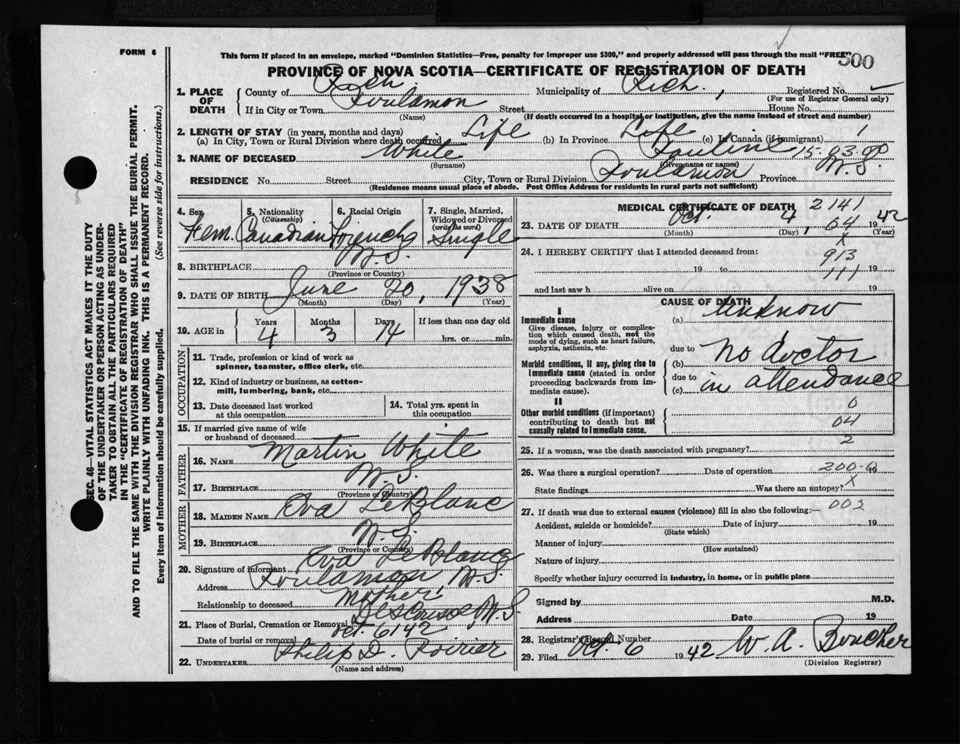 FORM 6
This form if placed in an envelope, marked "Dominion Statistics—Free, penalty for improper use $300," and properly addressed will pass through the mail "FREE"
500
PROVINCE OF NOVA SCOTIA—CERTIFICATE OF REGISTRATION OF DEATH
1. PLACE OF DEATH
County of Rich. Municipality of Rich. Registered No.
(For use of Registrar General only)
If in City or Town Poulamon Street House No.
(Name) (If death occurred in a hospital or institution, give the name instead of street and number)
2. LENGTH OF STAY (in years, months and days)
(a) In City, Town or Rural Division where death occurred Life (b) In Province Life (c) In Canada (if immigrant) 1
3. NAME OF DECEASED White Pauline 15-03.90
(Surname) (Given name or names)
RESIDENCE No. Street City, Town or Rural Division Poulamon Province N.S.
(Residence means usual place of abode. Post Office Address for residents in rural parts not sufficient)
4. Sex Fem.
5. Nationality (Citizenship) Canadian
6. Racial Origin French
7. Single, Married, Widowed or Divorced (write the word) Single
8. BIRTHPLACE N.S.
(Province or Country)
9. DATE OF BIRTH June 20, 1938
(Month) (Day) (Year)
10. AGE in Years Months Days If less than one day old
4 3 14 hrs. or min.
OCCUPATION
11. Trade, profession or kind of work as spinner, teamster, office clerk, etc.
12. Kind of industry or business, as cotton-mill, lumbering, bank, etc.
13. Date deceased last worked at this occupation
14. Total yrs. spent in this occupation
15. If married give name of wife or husband of deceased
FATHER
16. NAME Martin White
17. BIRTHPLACE N.S.
(Province or Country)
MOTHER
18. MAIDEN NAME Eva LeBlanc
19. BIRTHPLACE N.S.
(Province or Country)
20. Signature of informant Eva LeBlanc
Address Poulamon N.S.
Relationship to deceased Mother
21. Place of Burial, Cremation or Removal DesCousse N.S.
Date of burial or removal Oct. 6 1942
22. UNDERTAKER Philip D. Poirier
(Name and address)
MEDICAL CERTIFICATE OF DEATH 2141
23. DATE OF DEATH Oct. 4 04 1942
(Month) (Day) (Year)
X
24. I HEREBY CERTIFY that I attended deceased from:
913
19 to 111 19
and last saw h alive on 19
CAUSE OF DEATH
I
Immediate cause (a) Unknow
Give disease, injury or complication which caused death, not the mode of dying, such as heart failure, asphyxia, asthenia, etc.
due to No doctor
Morbid conditions, if any, giving rise to immediate cause (stated in order proceeding backwards from immediate cause).
(b)
due to in attendance
(c)
II 0
Other morbid conditions (if important) contributing to death but not causally related to immediate cause. 04
25. If a woman, was the death associated with pregnancy? 2
26. Was there a surgical operation? Date of operation 200-0
State findings Was there an autopsy? X
27. If death was due to external causes (violence) fill in also the following:— 002
Accident, suicide or homicide? Date of injury 19
(State which)
Manner of injury
(How sustained)
Nature of injury
Specify whether injury occurred in industry, in home, or in public place
Signed by M.D.
Address Date 19
28. Registrar's Record Number
29. Filed Oct. 6 1942 W. A. Boucher
(Division Registrar)
SEC. 46—VITAL STATISTICS ACT MAKES IT THE DUTY
OF THE UNDERTAKER OR PERSON ACTING AS UNDER-
TAKER TO OBTAIN ALL THE PARTICULARS REQUIRED
IN THE "CERTIFICATE OF REGISTRATION OF DEATH"
AND TO FILE THE SAME WITH THE DIVISION REGISTRAR WHO SHALL ISSUE THE BURIAL PERMIT.
WRITE PLAINLY WITH UNFADING INK. THIS IS A PERMANENT RECORD.
Every item of information should be carefully supplied. (See reverse side for instructions.)